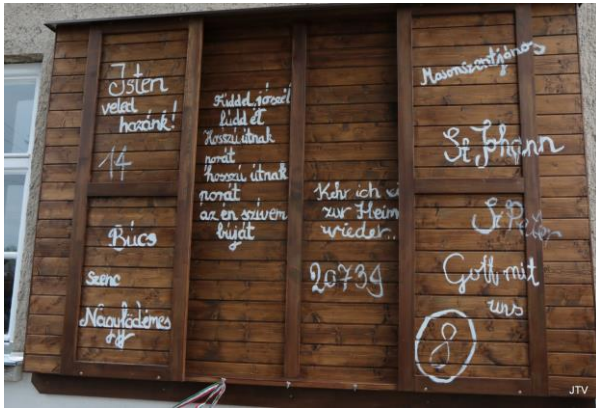 Isten
veled
hazánk!
14
Búcs
Szenc
Nagyfödémes
Küddel, józsél
lúdd ét
Hosszú útnak
porát
hosszú útnak
porát
az én szívem
búját
Kehr ich
zur Heim
wieder..
20739
Mosonszentjános
St Johann
St Peter
Gott mit
uns
8
JTV